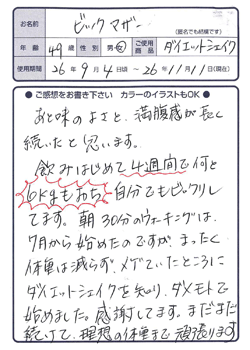 お名前 ビックマザー
(匿名でも結構です)
年齢 49歳 性別 男・女 ご使用商品 ダイエットシェイク
使用期間 26年9月4日頃 ~ 26年11月11日(現在)
●ご感想をお書き下さい カラーのイラストもOK●
あと味のよさと、満腹感が長く
続いたと思います。
飲みはじめて4週間で何と
6kgもおち、自分でもビックリし
てます。朝30分のウォーキングは、
7月から始めたのですが、まったく
体重は減らず、メゲていたところに
ダイエットシェイクを知り、ダメモトで
始めました。感謝してます。まだまだ
続けて、理想の体重まで頑張ります